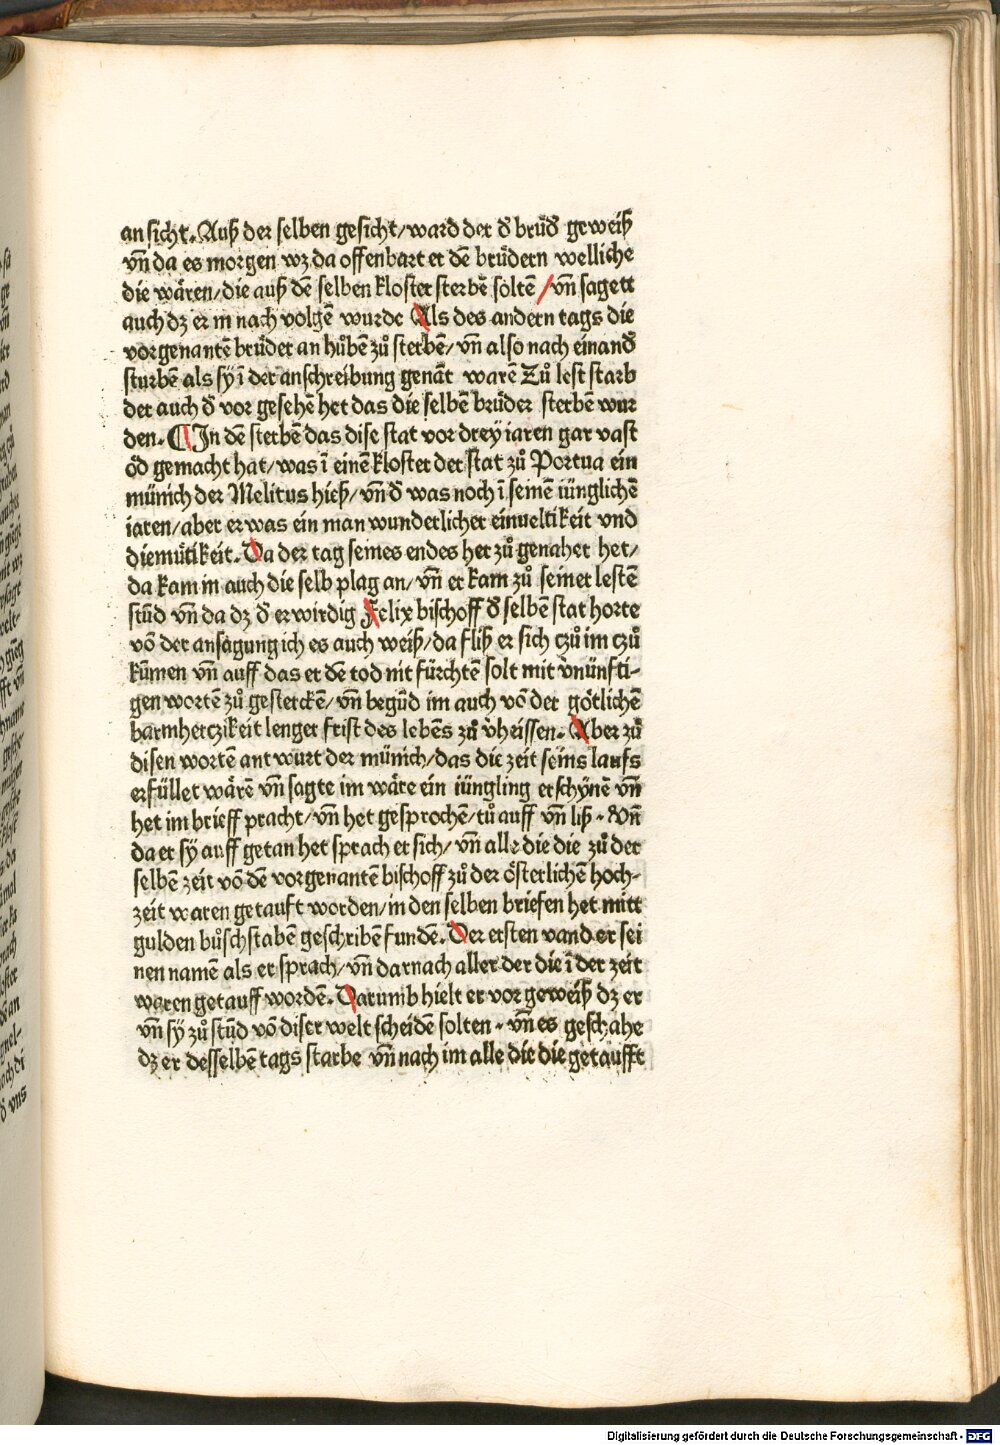 an sicht. Auß der selben gesicht/ward der d̕ brůd̕ geweiß
vn̄ da es morgen wz da offenbart er dē brůdern welliche
die wåren/die auß dē selben kloster sterbē soltē/vn̄ sagett
auch dz er in nach volgē wurde Als des andern tags die
vorgenantē brůder an hůben zů sterbē/vn̄ also nach einand̕
sturbē als sy ī der anschreibung genāt warē Zů lest starb
der auch d̕ vor gesehē het das die selben brůder sterbē wur
den. ¶In dē sterbē das dise stat vor drey iaren gar vast
öd gemacht hat/was ī einē kloster der stat zů Portua ein
münich der Melitus hieß/vn̄ d̕ was noch ī seinē iünglichē
iaren/aber er was ein man wunderlicher einueltikeit vnd
diemůtikeit. Da der tag seines endes her zů genahet het/
da kam in auch die selb plag an/vn̄ er kam zů seiner lestē
stūd vn̄ da dz d̕ erwirdig Felix bischoff d̕ selbē stat horte
vō der ansagung ich es auch weiß/da fliß er sich czů im czů
kūmen vn̄ auff das er dē tod nit fürchtē solt mit v̕nünfti-
gen wortē zů gesterckē/vn̄ begūd im auch vō der götlichē
barmherczikeit lenger frist des lebēs zů v̕heissen. Aber zů
disen wortē ant wurt der münich/das die zeit seins laufs
erfüllet wårē vn̄ sagte im wåre ein iüngling erschynē vn̄
het im brieff pracht/vn̄ het gesprochē/tů auff vn̄ liß. Vn̄
da er sy auff getan het sprach er sich/vn̄ alle die die zů der
selbē zeit vō dē vorgenantē bischoff zů der österlichē hoch-
zeit waren getauft worden/in den selben briefen het mitt
gulden bůschstabē geschribē fundē. Der ersten vand er sei
nen namē als er sprach/vn̄ darnach aller der die ī der zeit
waren getauff wordē. Darumb hielt er vor geweiß dz er
vn̄ sy zů stūd vō diser welt scheidē solten. vn̄ es geschahe
dz er desselbē tags starbe vn̄ nach im alle die die getaufft
Digitalisierung gefördert durch die Deutsche Forschungsgemeinschaft - DFG